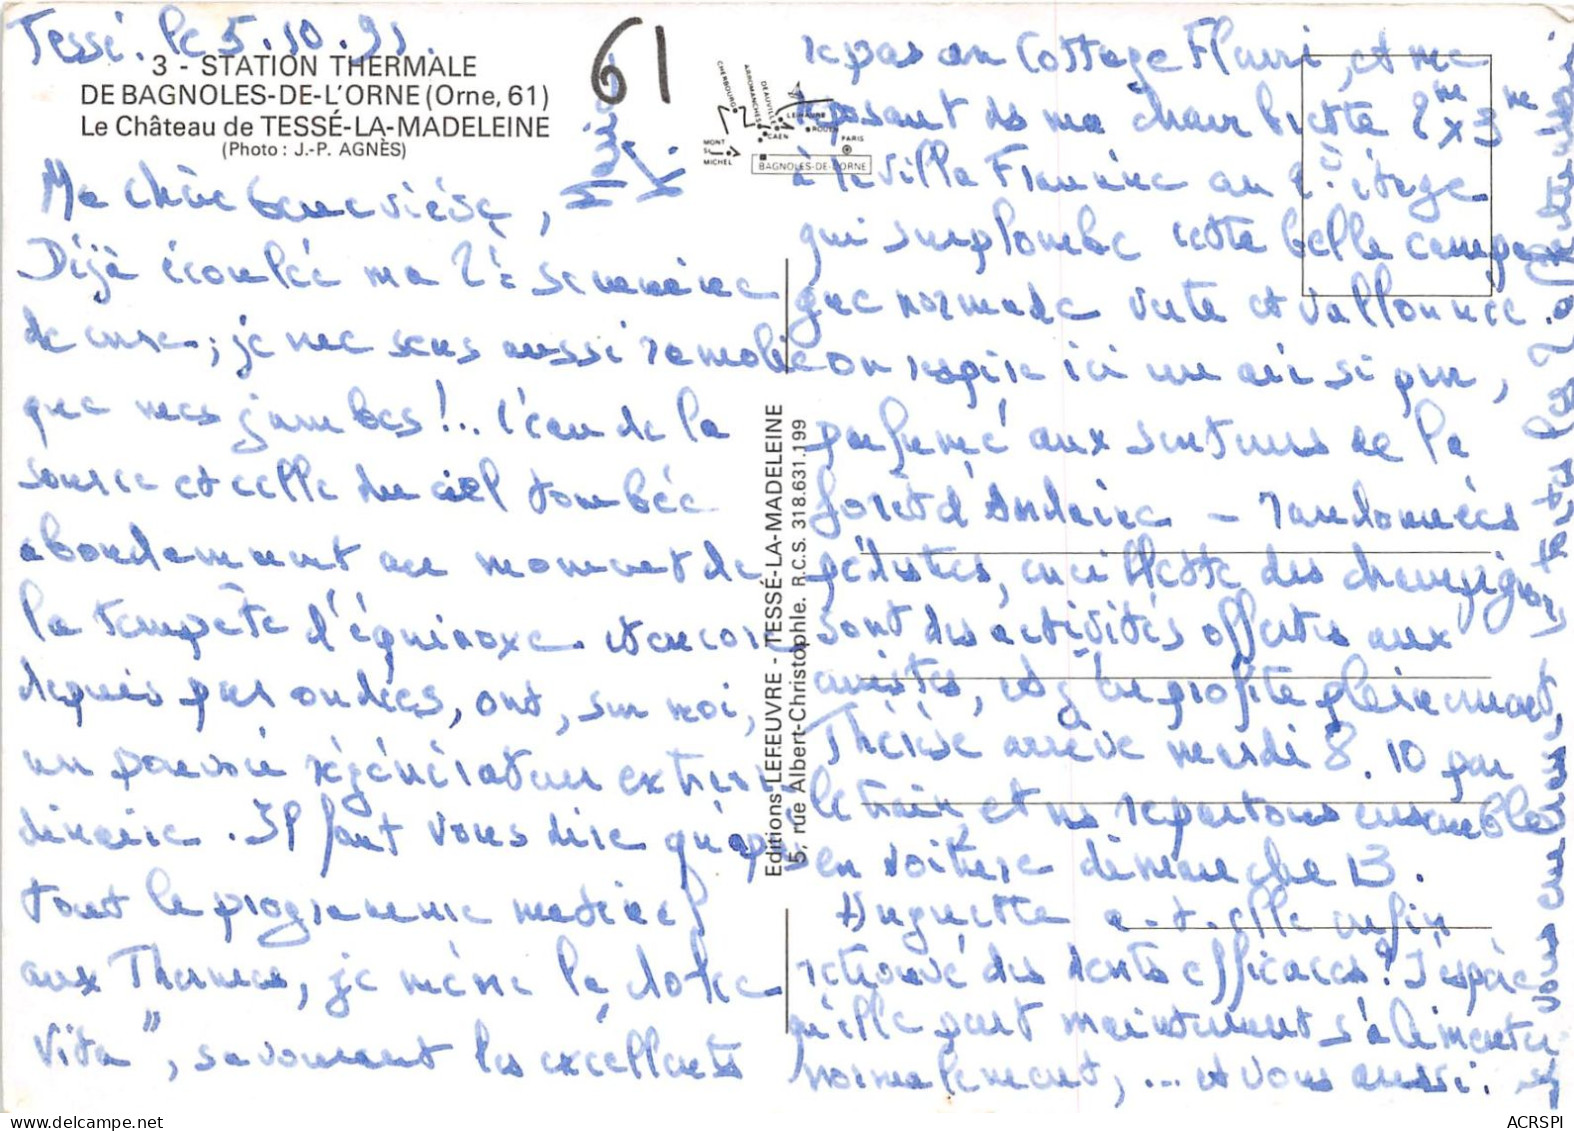 Tessé. le 5.10.91.
3 - STATION THERMALE
DE BAGNOLES-DE-L'ORNE (Orne, 61)
Le Château de TESSÉ-LA-MADELEINE
(Photo : J.-P. AGNÈS)
61
CHERBOURG
ARROMANCHES
DEAUVILLE
LE HAVRE
ROUEN
CAEN
PARIS
MONT
ST
MICHEL
BAGNOLES-DE-L'ORNE
Ma chère Geneviève,
Déjà écoulée ma 2è semaine
de cure ; je me sens aussi ramolie
que mes jambes !.. l'eau de la
source et celle du ciel tombée
abondamment au moment de
la tempête d'équinoxe et encore
depuis par ondées, ont, sur moi,
un pouvoir régénérateur extraor
dinaire. Il faut vous dire qu'après
tout le programme matinal
aux Thermes, je mène la dolce
vita", savourant les excellents
Editions LEFEUVRE - TESSÉ-LA-MADELEINE
5, rue Albert-Christophle. R.C.S. 318.631.199
repas au Cottage Fleuri, et me
reposant ds ma chambrette 2m x 3m
à la villa au 2è étage
qui surplombe cette belle campa
gne normande verte et vallonnée.
on respire ici un air si pur,
parfumé aux senteurs de la
forêt d'Andaine - randonnées
pédestres, cueillette des champignons
sont des activités offertes aux
curistes, et j'en profite pleinement,
Thérèse arrive mardi 8.10 par
le train et ns repartons ensemble
en voiture dimanche 13.
Huguette a-t-elle enfin
retrouvé des dents efficaces? J'espère
qu'elle peut maintenant s'alimenter
normalement, ... et vous aussi.